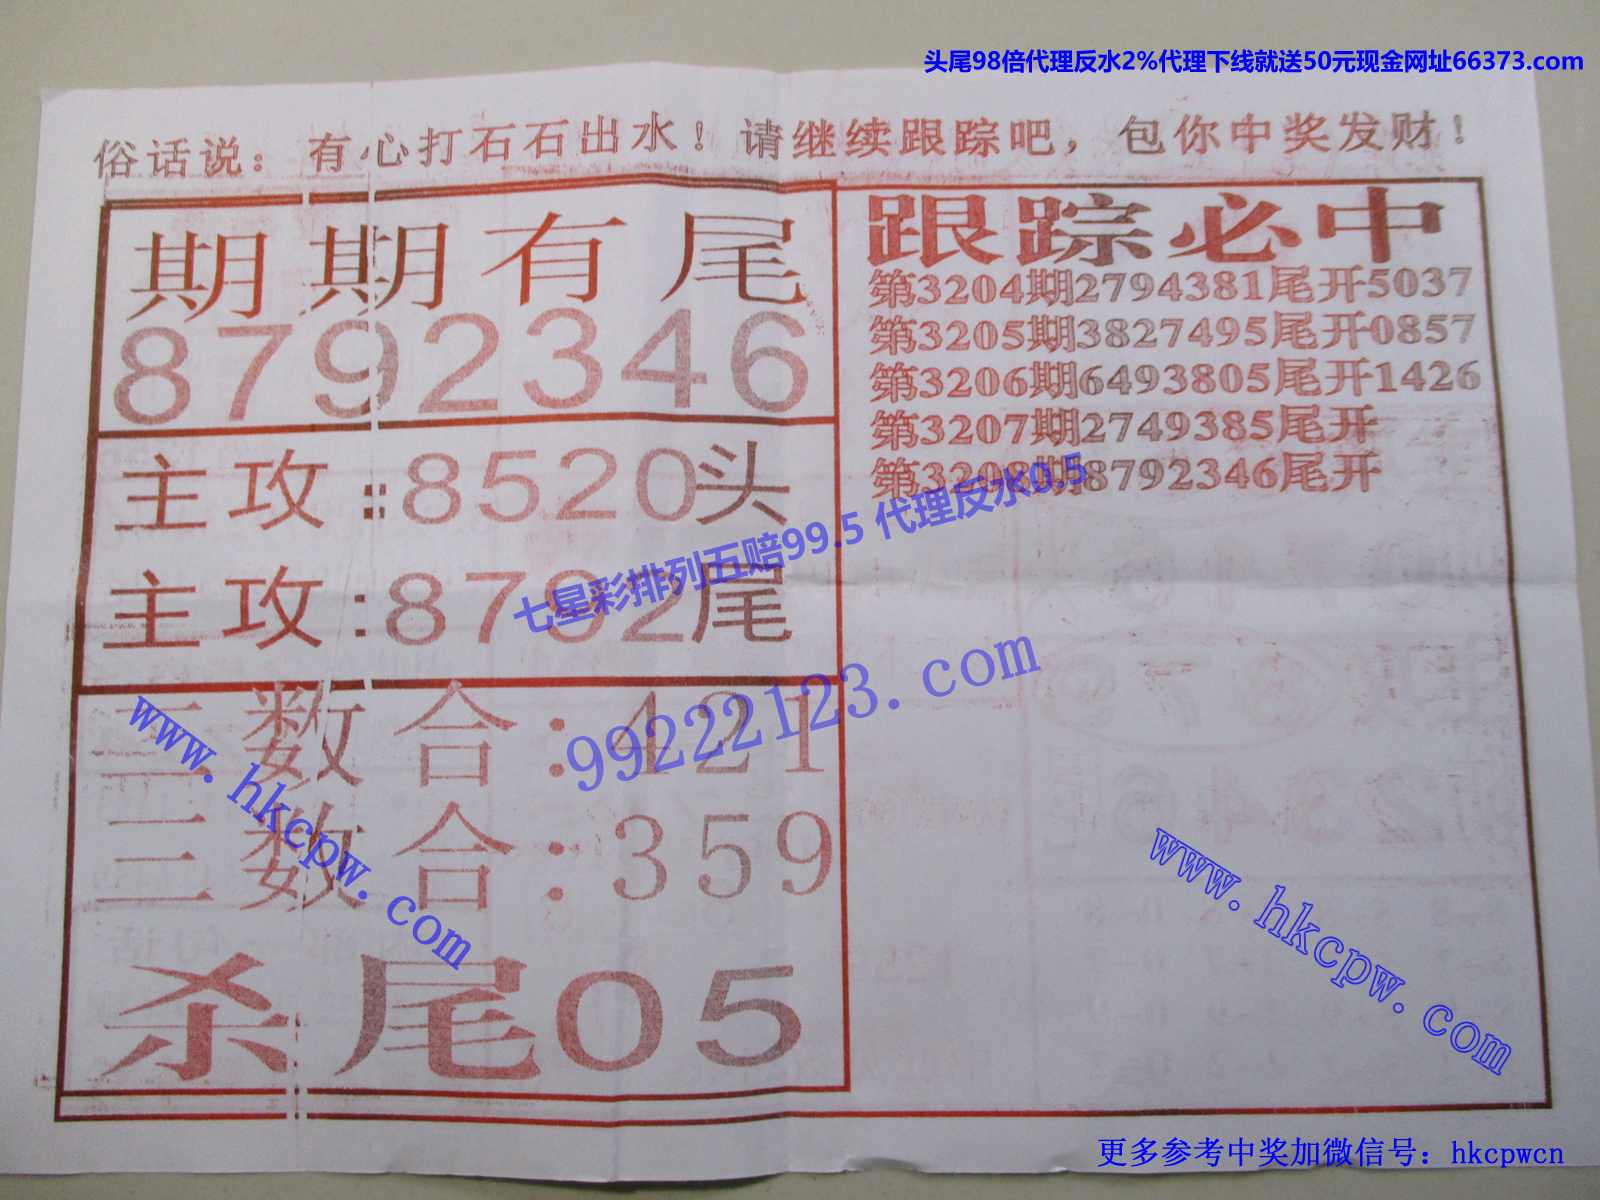 头尾98倍代理反水2%代理下线就送50元现金网址66373.com
俗话说：有心打石石出水！请继续跟踪吧，包你中奖发财！
期期有尾
8792346
主攻:8520头
主攻:8792尾
三数合:421
三数合:359
杀尾05
跟踪必中
第3204期2794381尾开5037
第3205期3827495尾开0857
第3206期6493805尾开1426
第3207期2749385尾开
第3208期8792346尾开
七星彩排列五赔99.5 代理反水0.5
99222123.com
www.hkcpw.com
www.hkcpw.com
更多参考中奖加微信号：hkcpwcn